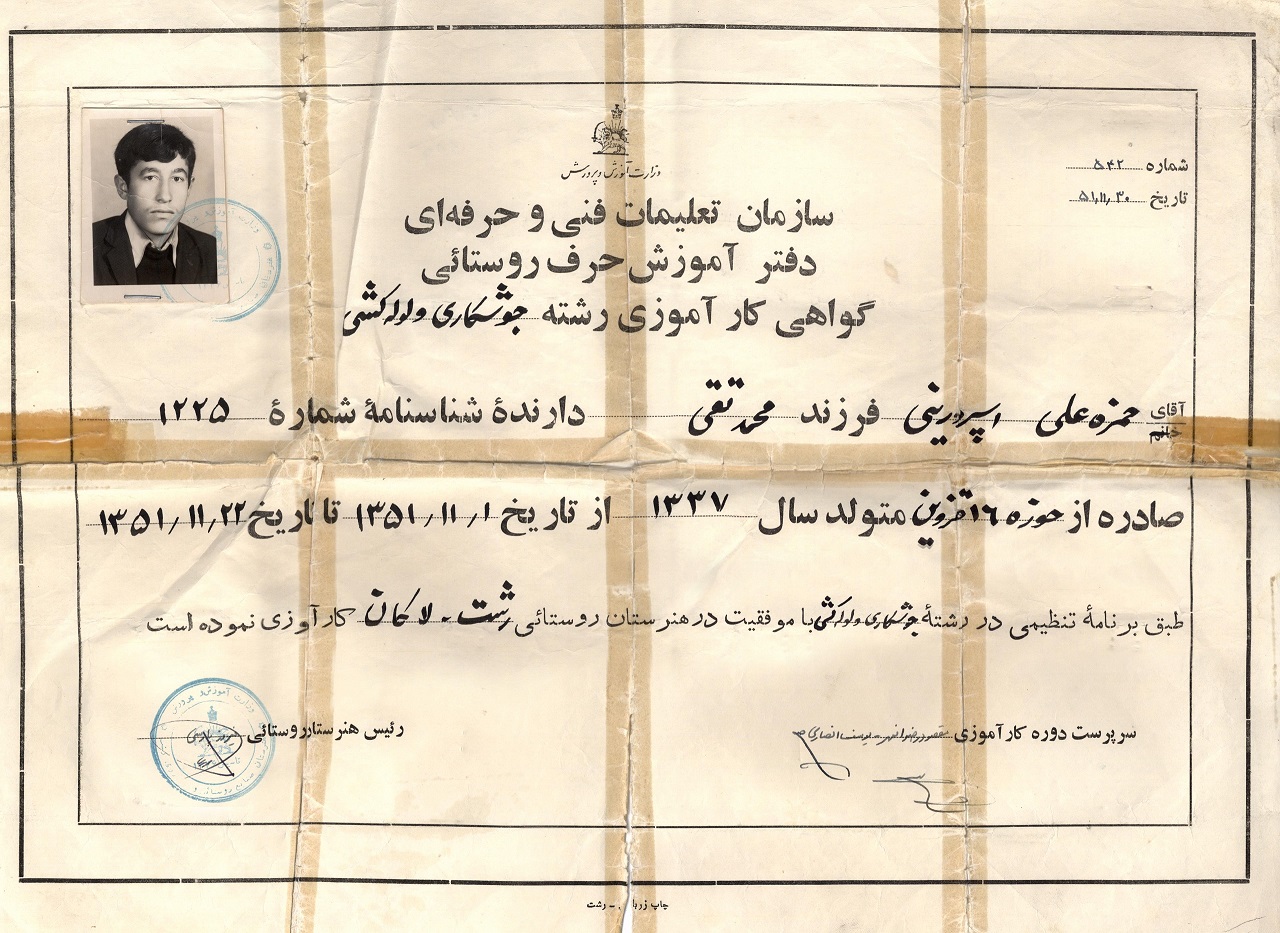 شماره ۵۴۲
تاریخ ۵۱٫۱۱٫۳۰
وزارت آموزش و پرورش
سازمان تعلیمات فنی و حرفه‌ای
دفتر آموزش حرف روستائی
گواهی کار آموزی رشته جوشکاری و لوله کشی
آقای خانم حمزه علی اسپرورینی فرزند محمد تقی دارندهٔ شناسنامهٔ شمارهٔ ۱۲۲۵
صادره از حوزه ۱۶ قزوین متولد سال ۱۳۳۷ از تاریخ ۱٫۱۱٫۱۳۵۱ تا تاریخ ۲۲٫۱۱٫۱۳۵۱
طبق برنامهٔ تنظیمی در رشتهٔ جوشکاری و لوله کشی با موفقیت در هنرستان روستائی رشت - لاکان کارآوزی نموده است
سرپرست دوره کارآموزی
رئیس هنرستان روستائی
وزارت آموزش و پرورش
چاپ - رشت